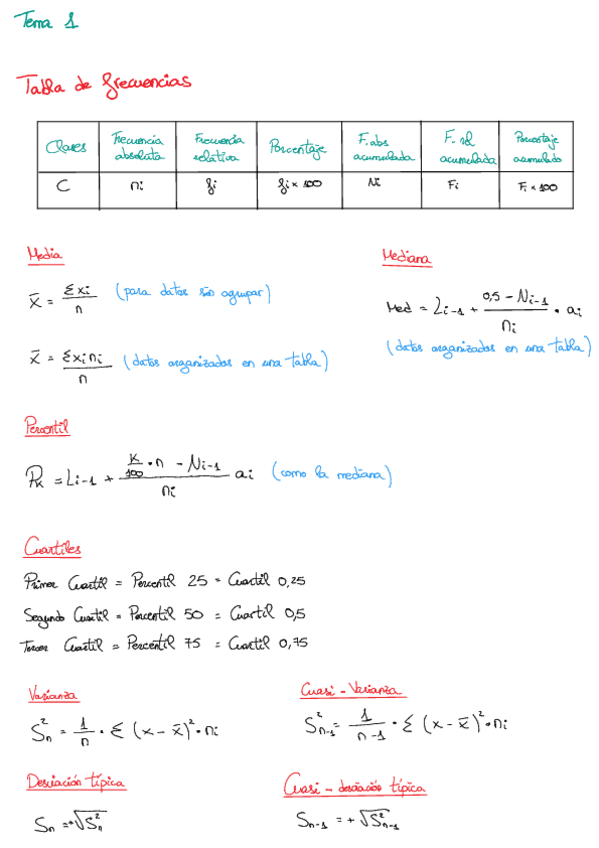 Tema 1
Tabla de frecuencias
Clases | Frecuencia absoluta | Frecuencia relativa | Porcentaje | F. abs acumulada | F. rel acumulada | Porcentaje acumulado
C | ni | fi | fi × 100 | Ni | Fi | Fi × 100
Media
x̄ = Σxi / n (para datos sin agrupar)
x̄ = Σxi ni / n (datos organizados en una tabla)
Mediana
Med = Li-1 + (0,5 - Ni-1) / ni · ai
(datos organizados en una tabla)
Percentil
Pk = Li-1 + (K/100 · n - Ni-1) / ni ai (como la mediana)
Cuartiles
Primer Cuartil = Percentil 25 = Cuartil 0,25
Segundo Cuartil = Percentil 50 = Cuartil 0,5
Tercer Cuartil = Percentil 75 = Cuartil 0,75
Varianza
S²n = 1/n · Σ (x - x̄)² · ni
Cuasi-Varianza
S²n-1 = 1/(n-1) · Σ (x - x̄)² · ni
Desviación típica
Sn = +√S²n
Cuasi-desviación típica
Sn-1 = + √S²n-1